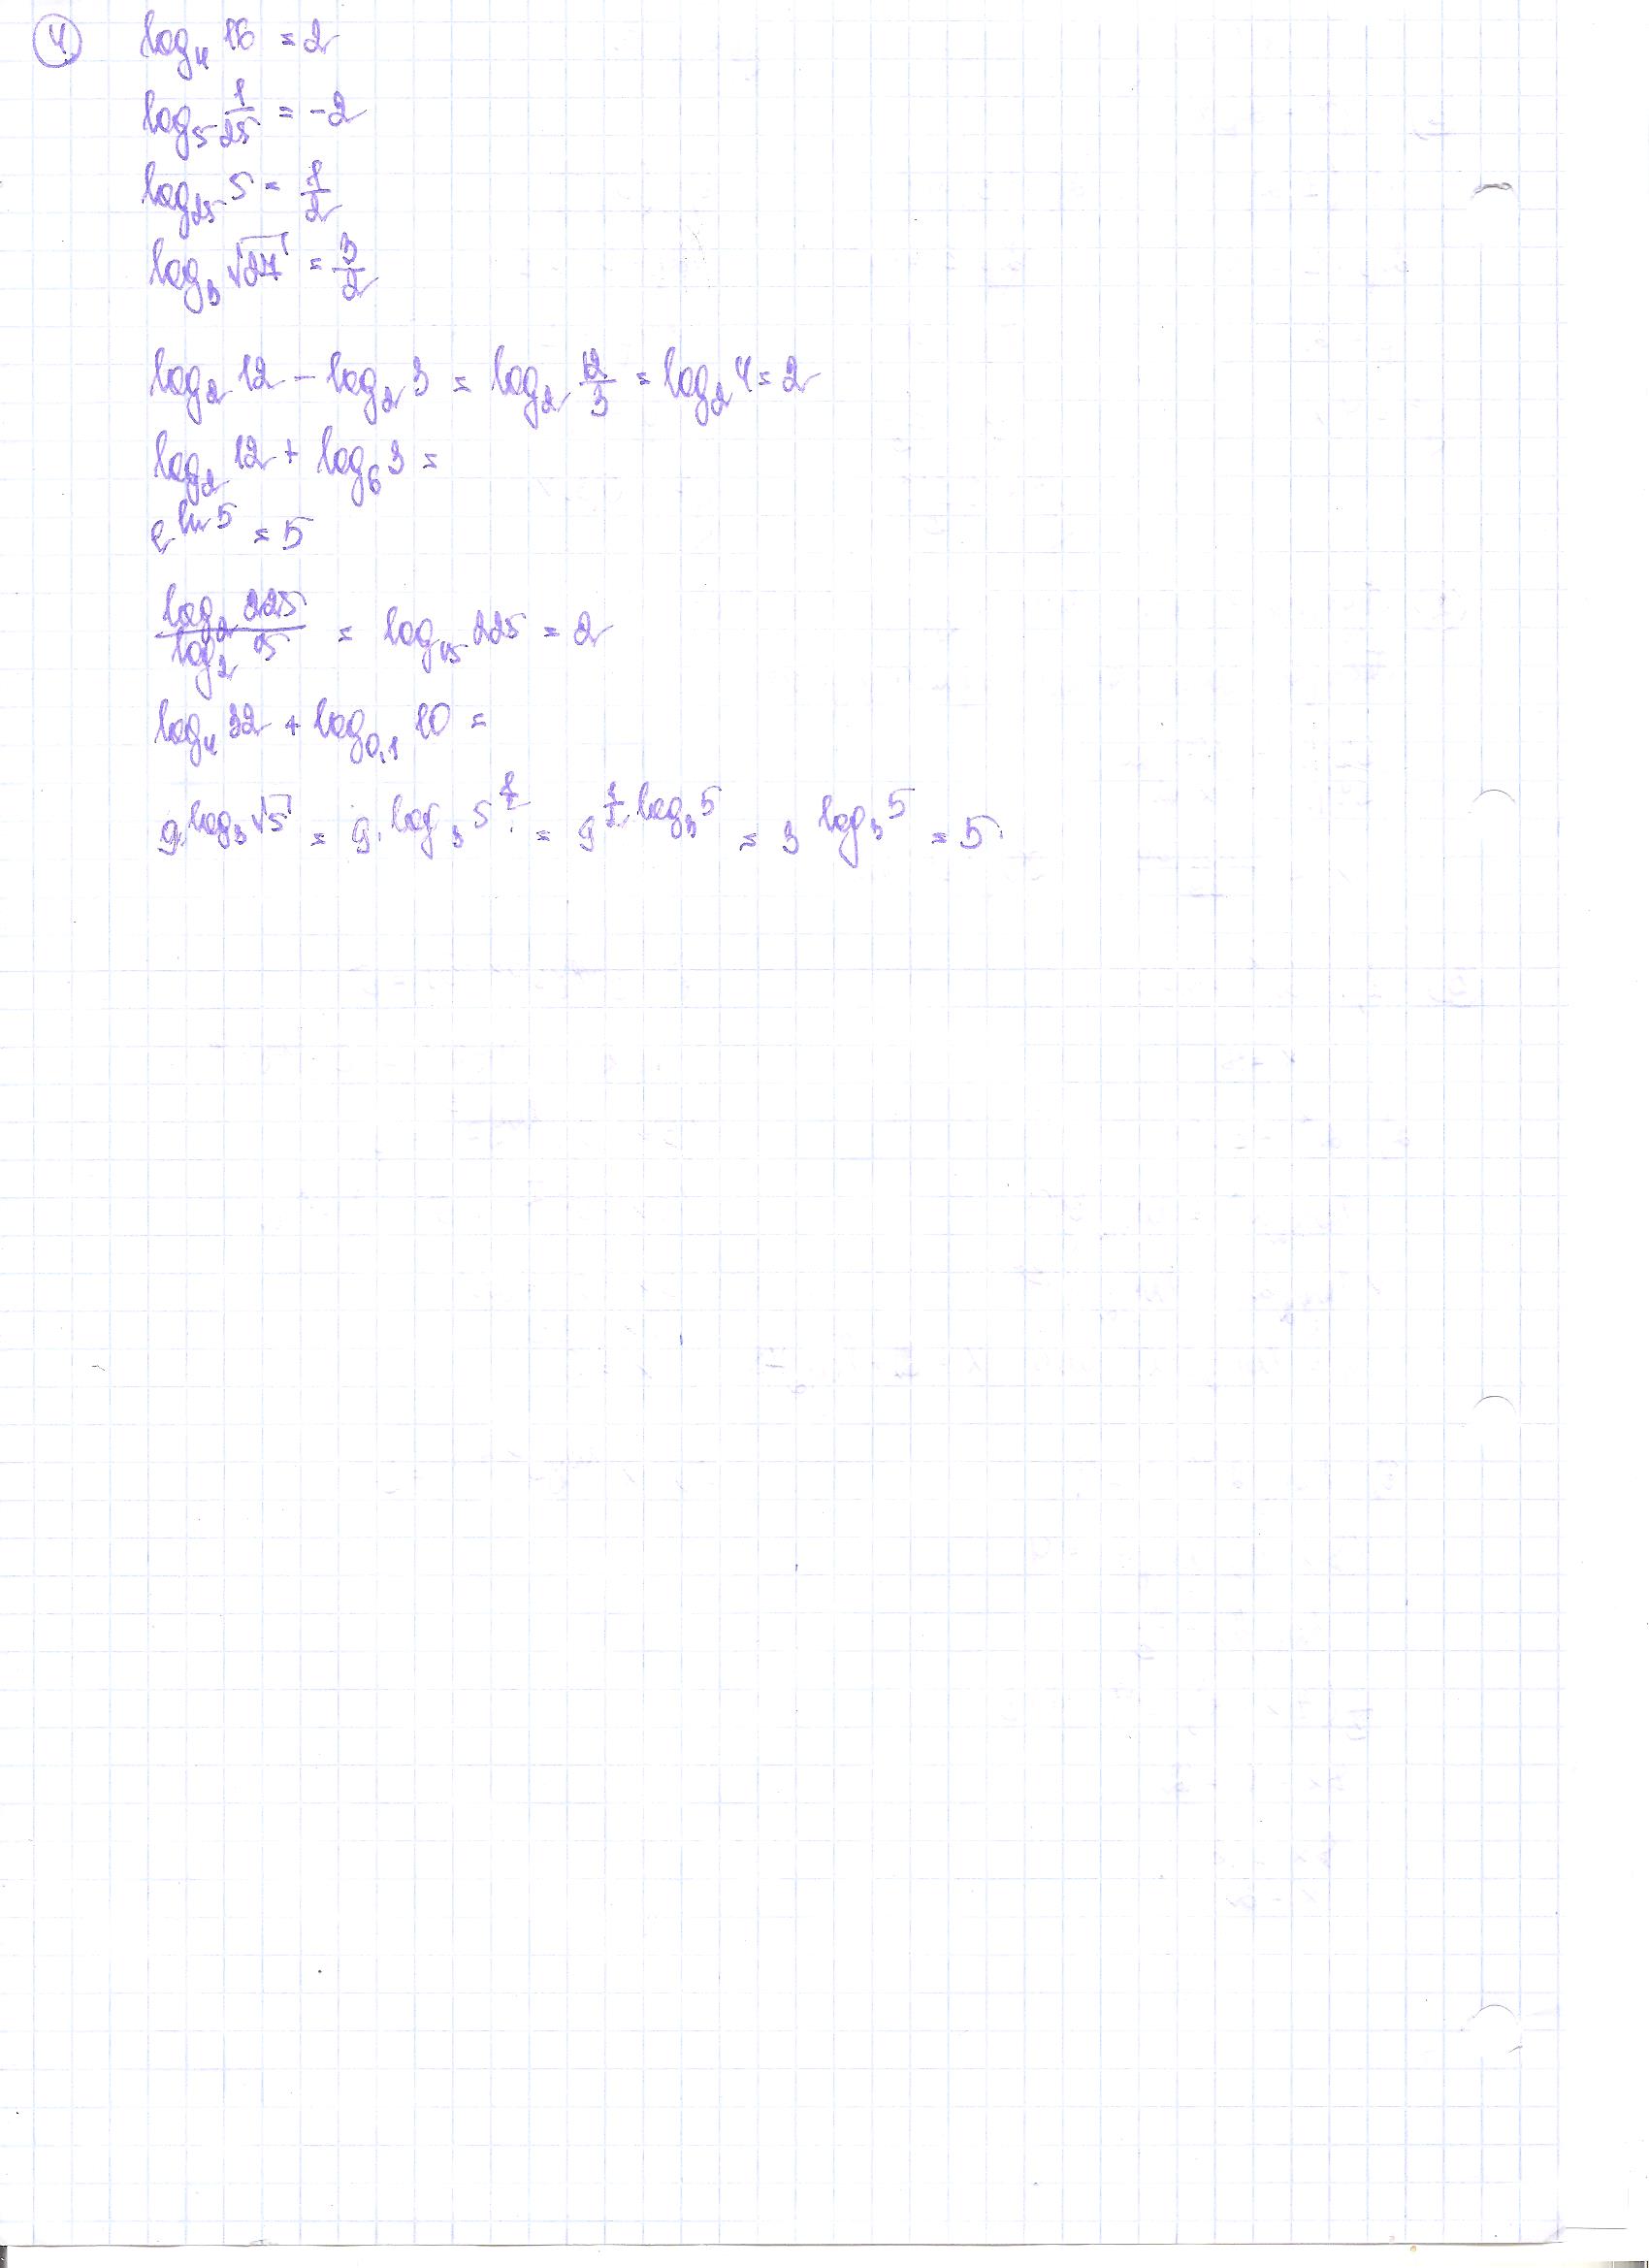 ④ log₄ 16 = 2
log₅ 1/25 = -2
log₂₅ 5 = 1/2
log₃ √27 = 3/2
log₂ 12 - log₂ 3 = log₂ 12/3 = log₂ 4 = 2
log₂ 12 + log₆ 3 =
e^ln 5 = 5
log₂ 225 / log₂ 15 = log₁₅ 225 = 2
log₄ 32 + log₀,₁ 10 =
9^log₃ √5 = 9^log₃ 5^1/2 = 9^1/2 · log₃ 5 = 3^log₃ 5 = 5